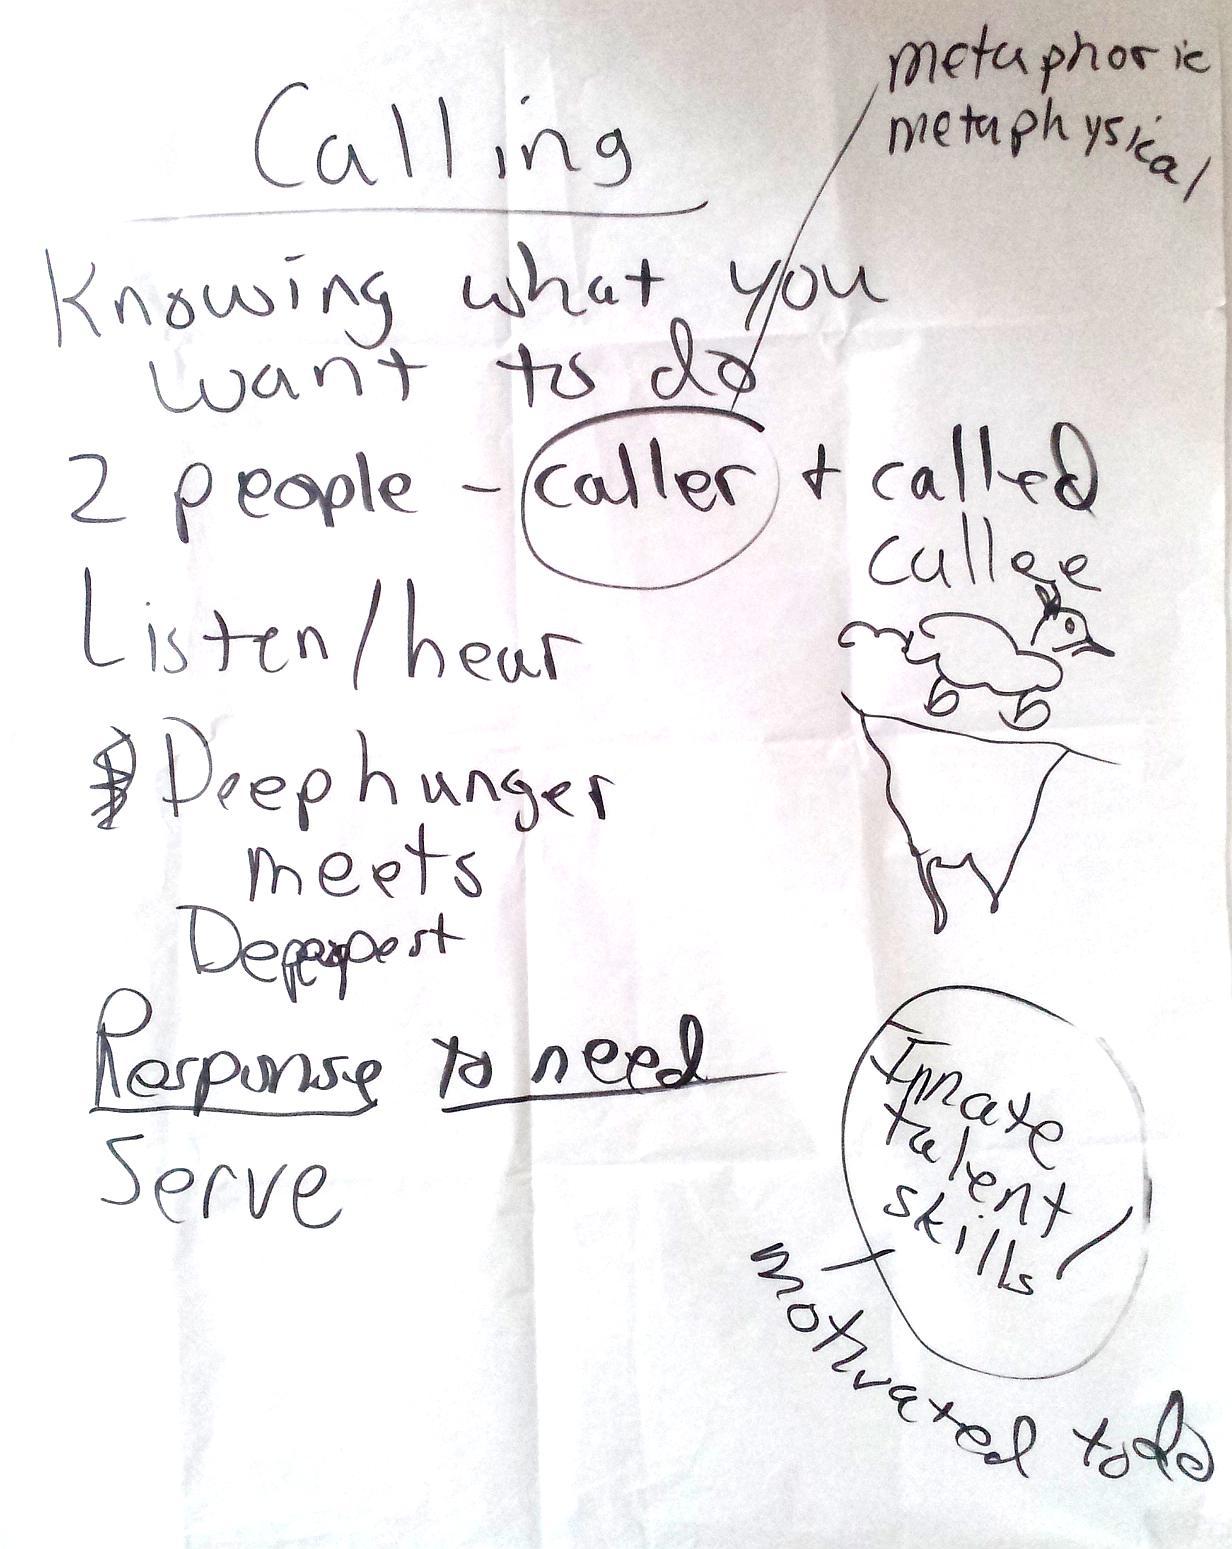 metaphoric
metaphysical
Calling
Knowing what you
want to do
2 people - caller + called
callee
Listen/hear
Deep hunger
meets
Deepest
Response to need
Serve
Innate
talent/
skills
motivated to do